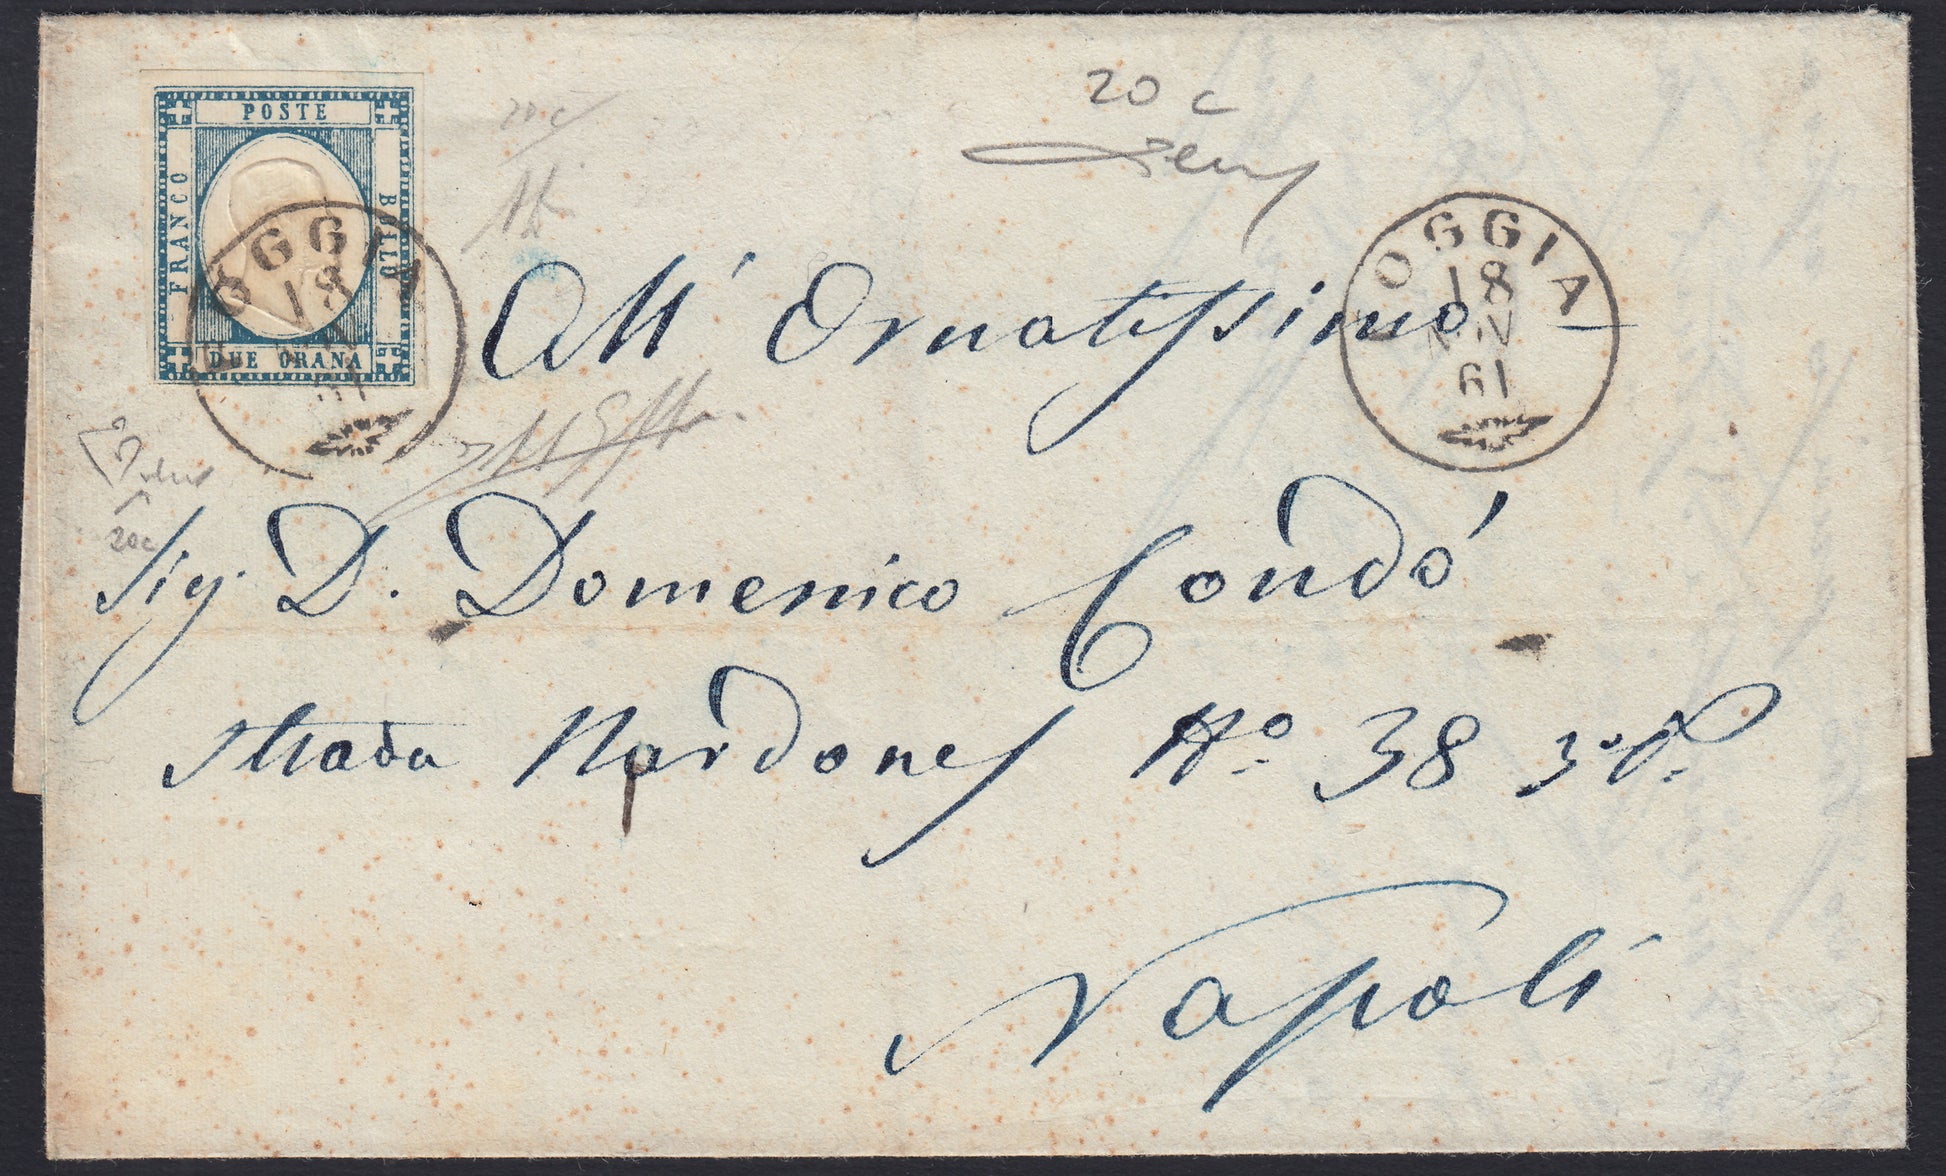 POSTE
FRANCO
BOLLO
DUE GRANA
FOGGIA
18
61
20 c
FOGGIA
18
61
All' Ornatissimo
Sig. D. Domenico Condó
20c
Strada Nardones No. 38 3o. P.
Napoli